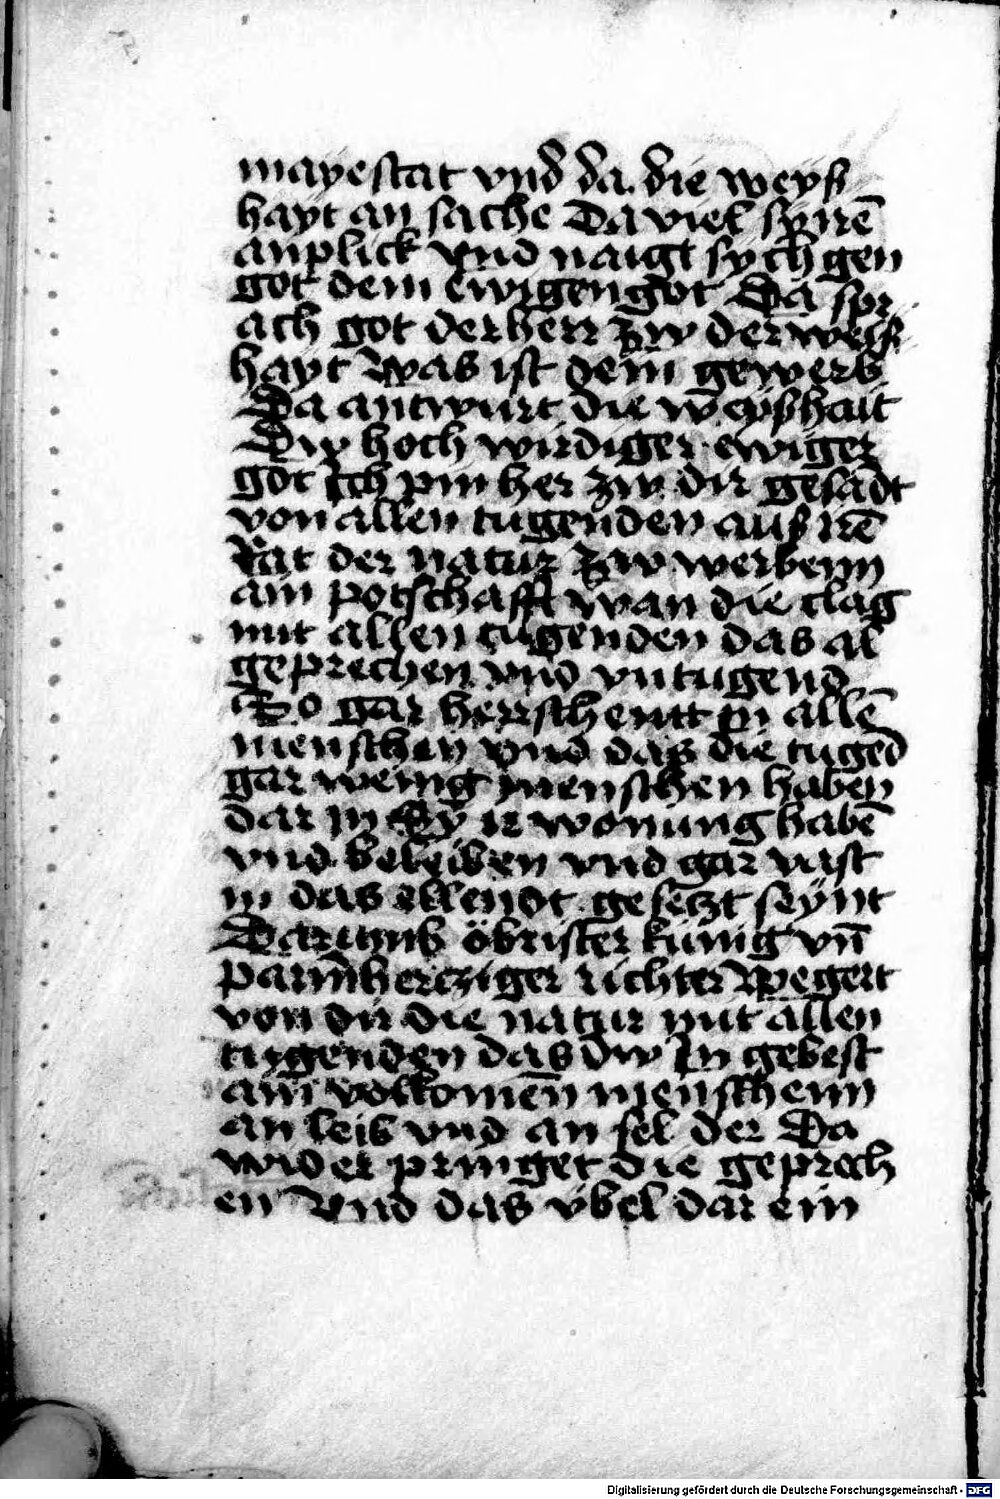 mayestat vnd da die weyß
hayt an sache Da viel sy irē
anplick vnd naigt sych gen
got dem ewigen got Da spr
ach got der herr zw der weiß
hayt Was ist dein gewerb
Da antwurt die weyßhait
Dw hoch wirdiger ewiger
got Ich pin her zw dir gesādt
von allen tugenden auß irē
Rat der natur zw werbenn
ain potschafft wan die clag
mit allen tugenden das al
geprechen vnd vntugend
So gar herrschentt in allē
menschen vnd das die tugēd
gar wenig menschen haben
dar in Sy ir wonung habē
vnd beleiben vnd gar vast
in das ellendt gesetzt seynt
Darumb öbrister künig vn̄
parmhercziger richter Wegert
von dir die natur mit allen
tugenden das dw In gebest
ain volkomen̄ menschenn
an leib vnd an sel der Da
wider pringet die geprech
en Vnd das vbel dar ein
Digitalisierung gefördert durch die Deutsche Forschungsgemeinschaft - DFG